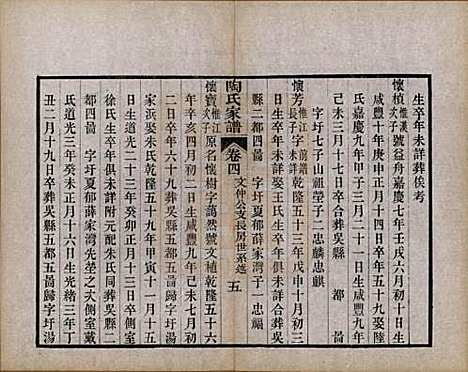 生卒年未詳葬俟考
懷楨 惟漢次子 號益舟嘉慶七年壬戌六月初十日生
咸豐十年庚申正月十四日卒年五十九娶陸
氏嘉慶九年甲子三月二十一日生咸豐九年
己未三月十五日卒合葬吳縣 都 啚
字圩七子山祖塋子二忠麟忠麒
懷芳 惟江長子 前譜未詳 乾隆五十三年戊申十月初三
日生卒年未詳娶王氏生卒年俱未詳合葬吳
縣二都四啚 字圩夏郁薛家灣子一忠福
懷寶 惟江次子 原名懷樹字蔼然號文植乾隆五十六
年辛亥四月初二日生道光二十七年丁未七月初
陶氏家譜 卷四 文仲公支長房世系述 五
家浜娶朱氏乾隆五十九年甲寅十一月十五
日生道光二十三年癸卯正月十三日卒側室
徐氏生卒年俱未詳附元配朱氏同葬吳縣二
都四啚 字圩夏郁薛家灣先塋之次側室戴
氏道光三年癸未十月十六日生光緒三年丁
丑二月十九日卒葬吳縣五都五啚歸字圩湯